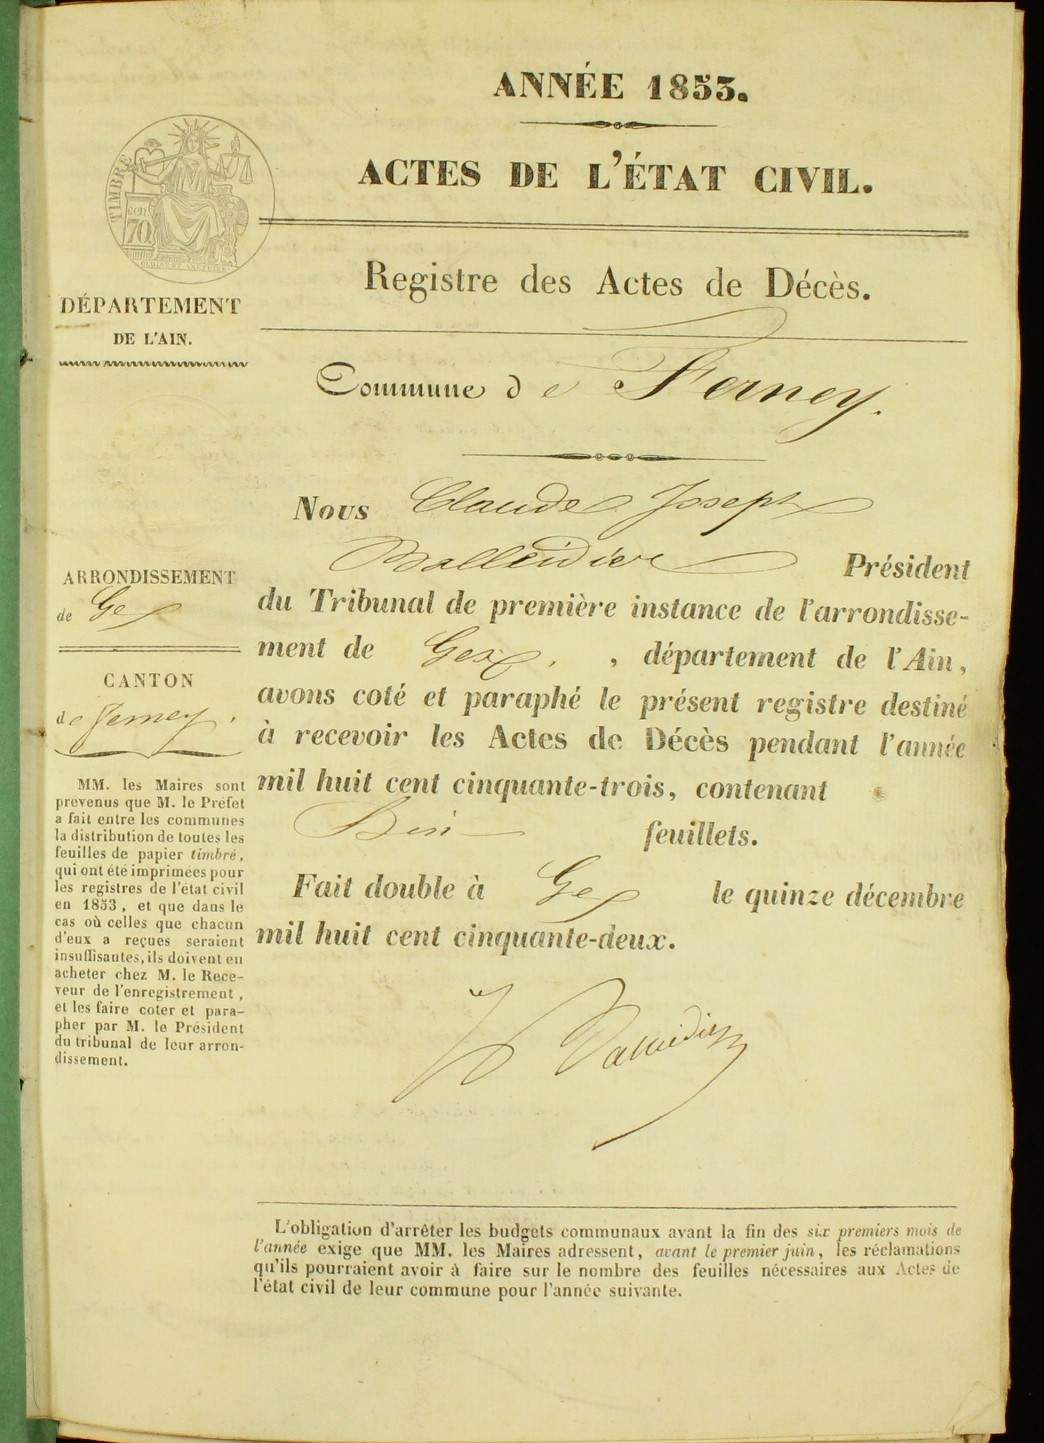 ANNÉE 1853.
ACTES DE L'ÉTAT CIVIL.
TIMBRE
cen.
70
Registre des Actes de Décès.
DÉPARTEMENT
DE L'AIN.
Commune de Ferney.
Nous Claude Joseph
Président
ARRONDISSEMENT
de Gex
du Tribunal de première instance de l'arrondisse-
ment de Gex, , département de l'Ain,
CANTON
de Ferney.
avons coté et paraphé le présent registre destiné
à recevoir les Actes de Décès pendant l'année
mil huit cent cinquante-trois, contenant
feuillets.
Fait double à Gex le quinze décembre
mil huit cent cinquante-deux.
MM. les Maires sont
prévenus que M. le Préfet
a fait entre les communes
la distribution de toutes les
feuilles de papier timbré,
qui ont été imprimées pour
les registres de l'état civil
en 1853, et que dans le
cas où celles que chacun
d'eux a reçues seraient
insuffisantes, ils doivent en
acheter chez M. le Rece-
veur de l'enregistrement,
et les faire coter et para-
pher par M. le Président
du tribunal de leur arron-
dissement.
L'obligation d'arrêter les budgets communaux avant la fin des six premiers mois de
l'année exige que MM. les Maires adressent, avant le premier juin, les réclamations
qu'ils pourraient avoir à faire sur le nombre des feuilles nécessaires aux Actes de
l'état civil de leur commune pour l'année suivante.